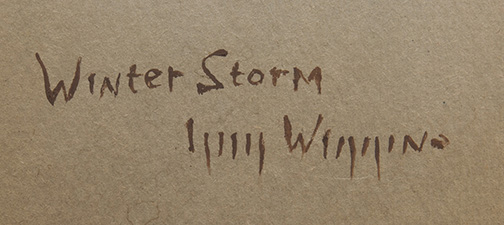 Winter Storm
Guy Wiggins